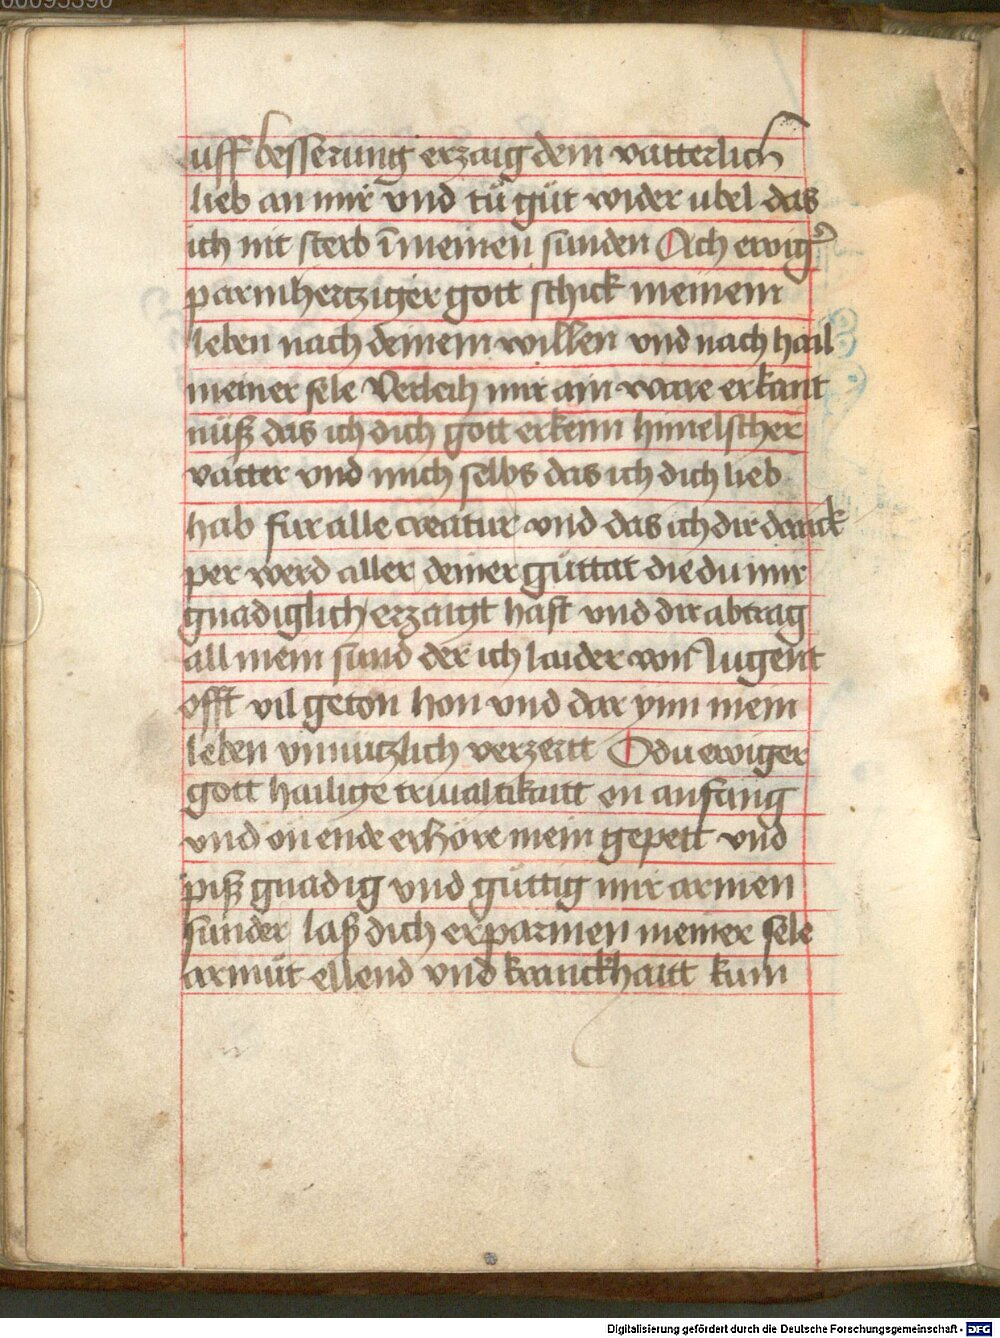 00095390
uff besserung erzaig dein vatterlich
lieb an mir und tů gůt wider ubel das
ich nit sterb ī meinen sunden Och ewiger
parmhertziger gott schick meinem
leben nach deinem willen vnd nach hail
meiner sele Verleih mir ain ware erkant
nüß das ich dich gott erkenn himelscher
vatter vnd mich selbs das ich dich lieb
hab fur alle creatur vnd das ich dir danck
per werd aller deiner gůttat die du mir
gnadiglich erzaigt hast vnd dir abtrag
all mein sünd der ich laider von Jugent
offt vil geton hon vnd dar ynn mein
leben vnnützlich verzertt O du ewiger
gott hailige triualtikaitt on anfang
vnd on ende erhöre mein gepett vnd
piß gnadig vnd güttig mir armen
sunder laß dich erparmen meiner sele
armůt ellend vnd kranckhaitt kum
Digitalisierung gefördert durch die Deutsche Forschungsgemeinschaft - DFG